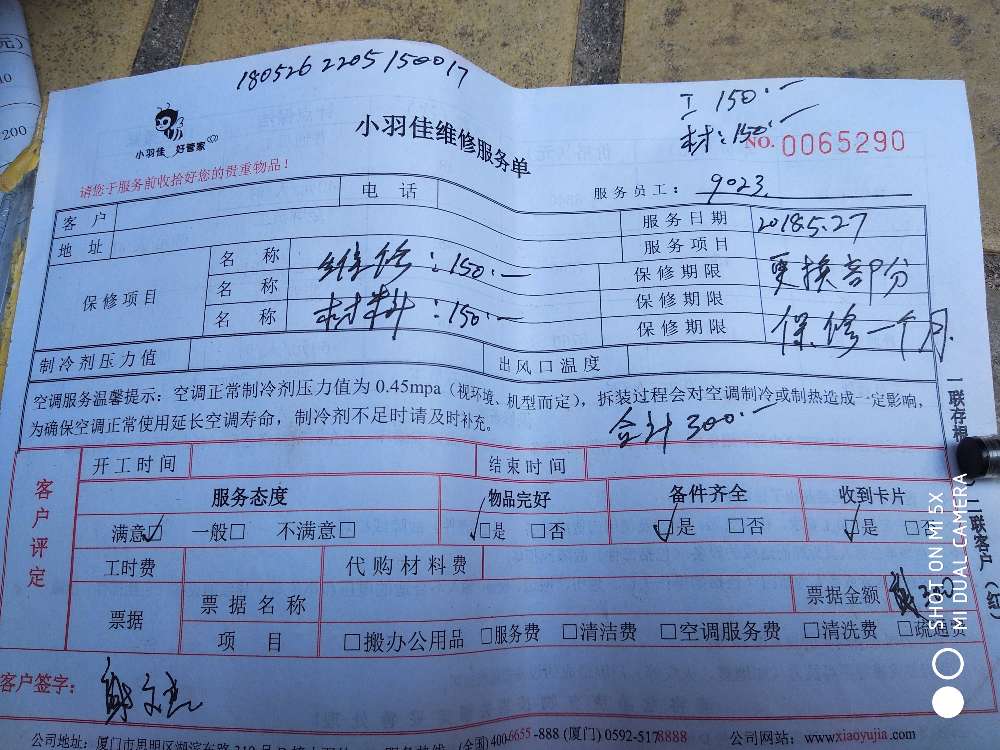 元）
00
200
180526 2205150017
工 150.一
材：150.一
小羽佳 好管家
小羽佳维修服务单
NO. 0065290
请您于服务前收拾好您的贵重物品！
服务员工： 9023
客 户
电 话
服务日期 2018.5.27
地 址
服务项目
保修项目
名 称 维修：150.一
保修期限 更换部分
名 称
保修期限
名 称 材料：150.一
保修期限 保修一个月.
制冷剂压力值
出风口温度
空调服务温馨提示：空调正常制冷剂压力值为 0.45mpa（视环境、机型而定），拆装过程会对空调制冷或制热造成一定影响，
为确保空调正常使用延长空调寿命，制冷剂不足时请及时补充。
合计 300.一
一联存根
二联客户（红）
客户评定
开工时间
结束时间
服务态度
物品完好
备件齐全
收到卡片
满意□ 一般□ 不满意□
□是 □否
□是 □否
□是 □否
工时费
代购材料费
票据
票据名称
票据金额
项 目
□搬办公用品 □服务费 □清洁费 □空调服务费 □清洗费 □疏通费
客户签字：
公司地址：厦门市思明区湖滨东路
(全国)400-6655-888 (厦门) 0592-5178888
公司网站：www.xiaoyujia.com
SHOT ON MI 5X
MI DUAL CAMERA